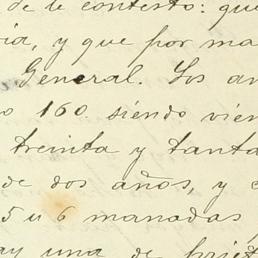 de le contesto: que
ia, y que por ma
General. Los an
o 160 siendo vien
treinta y tanta
de dos años, y e
5 u 6 manadas
ay una de priet